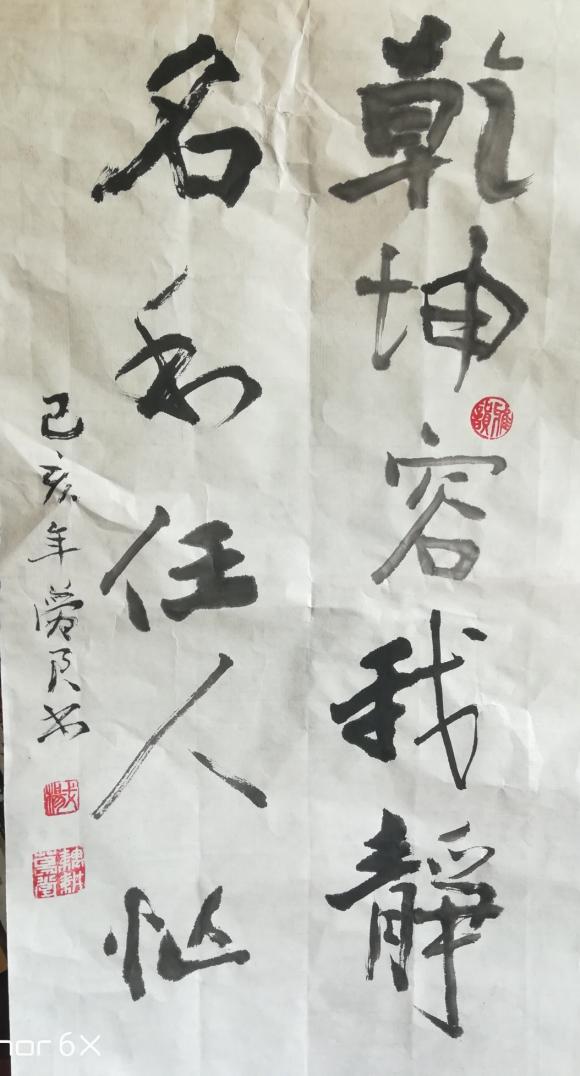 乾坤容我静
名利任人忙
己亥年
书
nor 6X